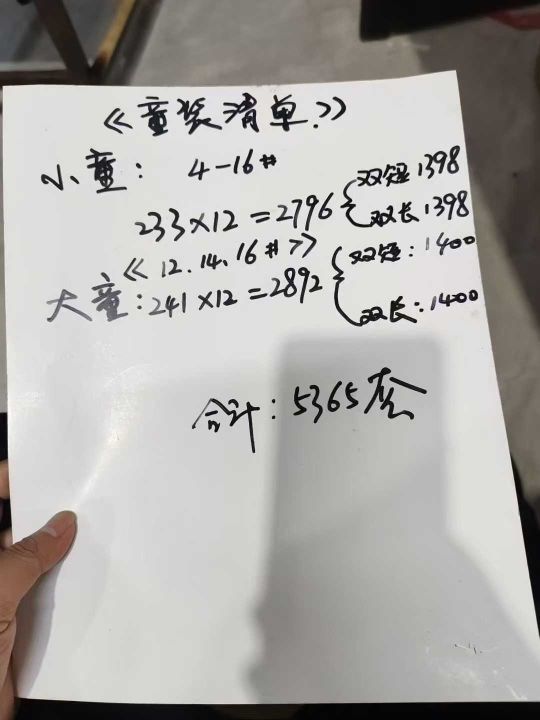 《童装清单》
小童: 4-16#
233×12=2796{双短1398
双长1398
《12.14.16#》
大童:241×12=2892{双短:1400
双长:1400
合计:5365套